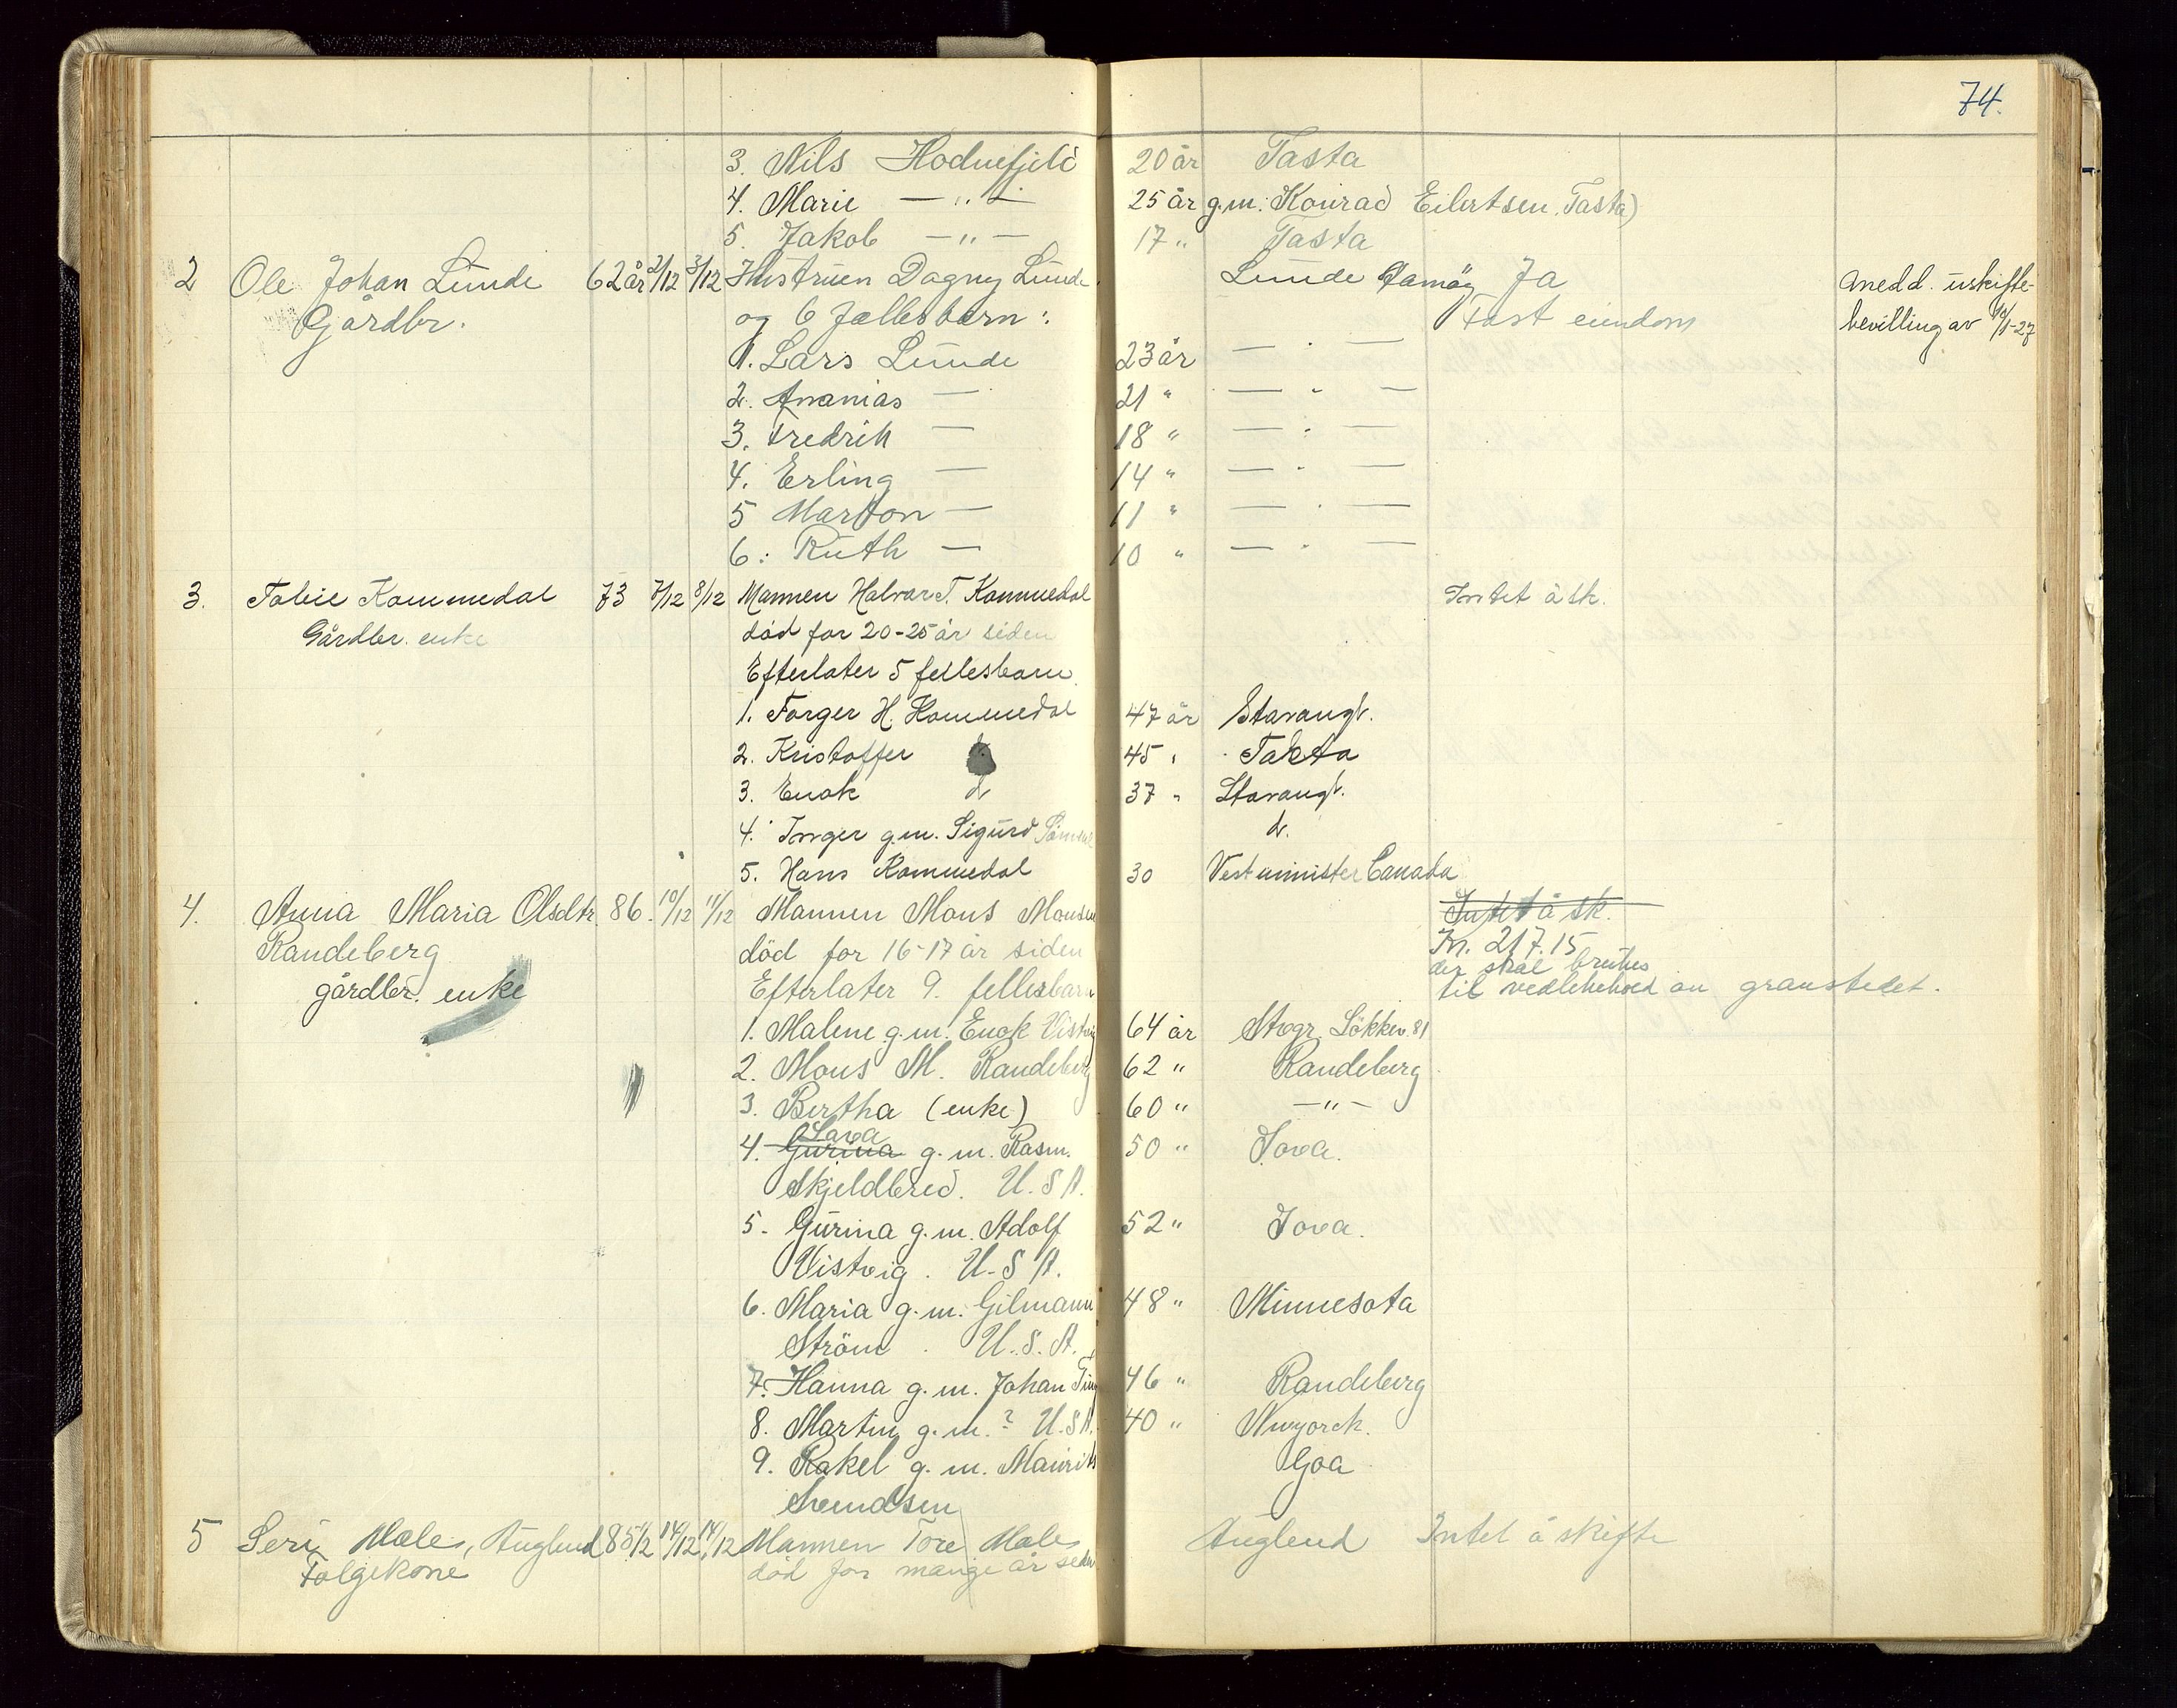 74.
3. Nils Hodnefjeld 20 år Tasta
4. Marie — " — 25 år g.m. Konrad Eilertsen, Tasta)
5. Jakob — " — 17 " Tasta
2 Ole Johan Lunde 62 år 2/12 3/12 Hustruen Dagny Lunde Lunde Ja Medd. uskifte-
Gårdbr. og 6 fællesbarn: Fast eiendom bevilling av
1. Lars Lunde 23 år — " —
2. Ananias — 21 " — " —
3. Fredrik — 18 " — " —
4. Erling — 14 " — " —
5 Marton — 11 " — " —
6: Ruth — 10 " — " —
3. Tabie Kommedal 73 7/12 8/12 Mannen Halvar T. Kommedal Intet å sk.
Gårdbr. enke död for 20-25 år siden
Efterlater 5 fellesbarn.
1. Torger H. Kommedal 47 år Stavangr.
2. Kristoffer 45 " Taksta
3. Enok d. 37 " Stavangr.
4. Inger g.m. Sigurd d.
5. Hans Kommedal 30 Vestminister Canada
4. Anna Maria Olsdtr. 86. 10/12 11/12 Mannen Mons Monsen Intet å sk.
Randeberg död for 16-17 år siden Kr. 217.15
der skal brukes
gårdbr. enke Efterlater 9. fellesbarn til vedlikehold av gravstedet.
1. Malene g.m. Enok Vistvig 64 år Stvgr. Lökkev. 81
2. Mons M. Randeberg 62 " Randeberg
3. Bertha (enke) 60 " — " —
Sava
4. Gurina g.m. Rasm. 50 " Iova.
Skjeldbred. U.S.A.
5. Gurina g.m. Adolf 52 " Iova.
Vistvig. U.S.A.
6. Maria g.m. Gilmann 48 " Minnesota
Ström. U.S.A.
7. Hanna g.m. Johan 46 " Randeberg
8. Martin g.m. ? U.S.A. 40 " Nwyorck.
9. Rakel g.m. Maurits Goa
Svendsen
5 Seri Mæle, Auglend 85 1/2 14/12 14/12 Mannen Tore Mæle Auglend Intet å skifte
Følgekone död for mange år siden